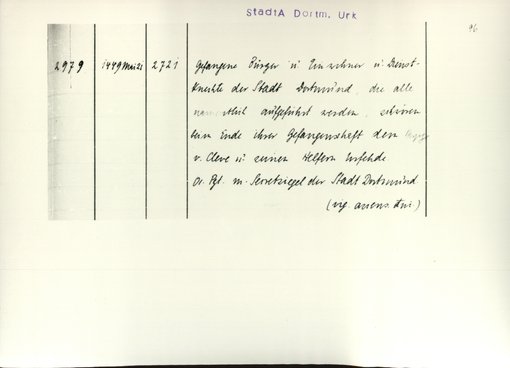 StadtA Dortm. Urk
96
2979 1449 Mai 21 2721 Gefangene Bürger u Einwohner u Dienst-
knechte der Stadt Dortmund, die alle
namentlich aufgeführt werden, schwören
beim Ende ihrer Gefangenschaft dem
v. Cleve u seinen Helfern Urfehde
Or. Pgt. m. Secretsiegel der Stadt Dortmund